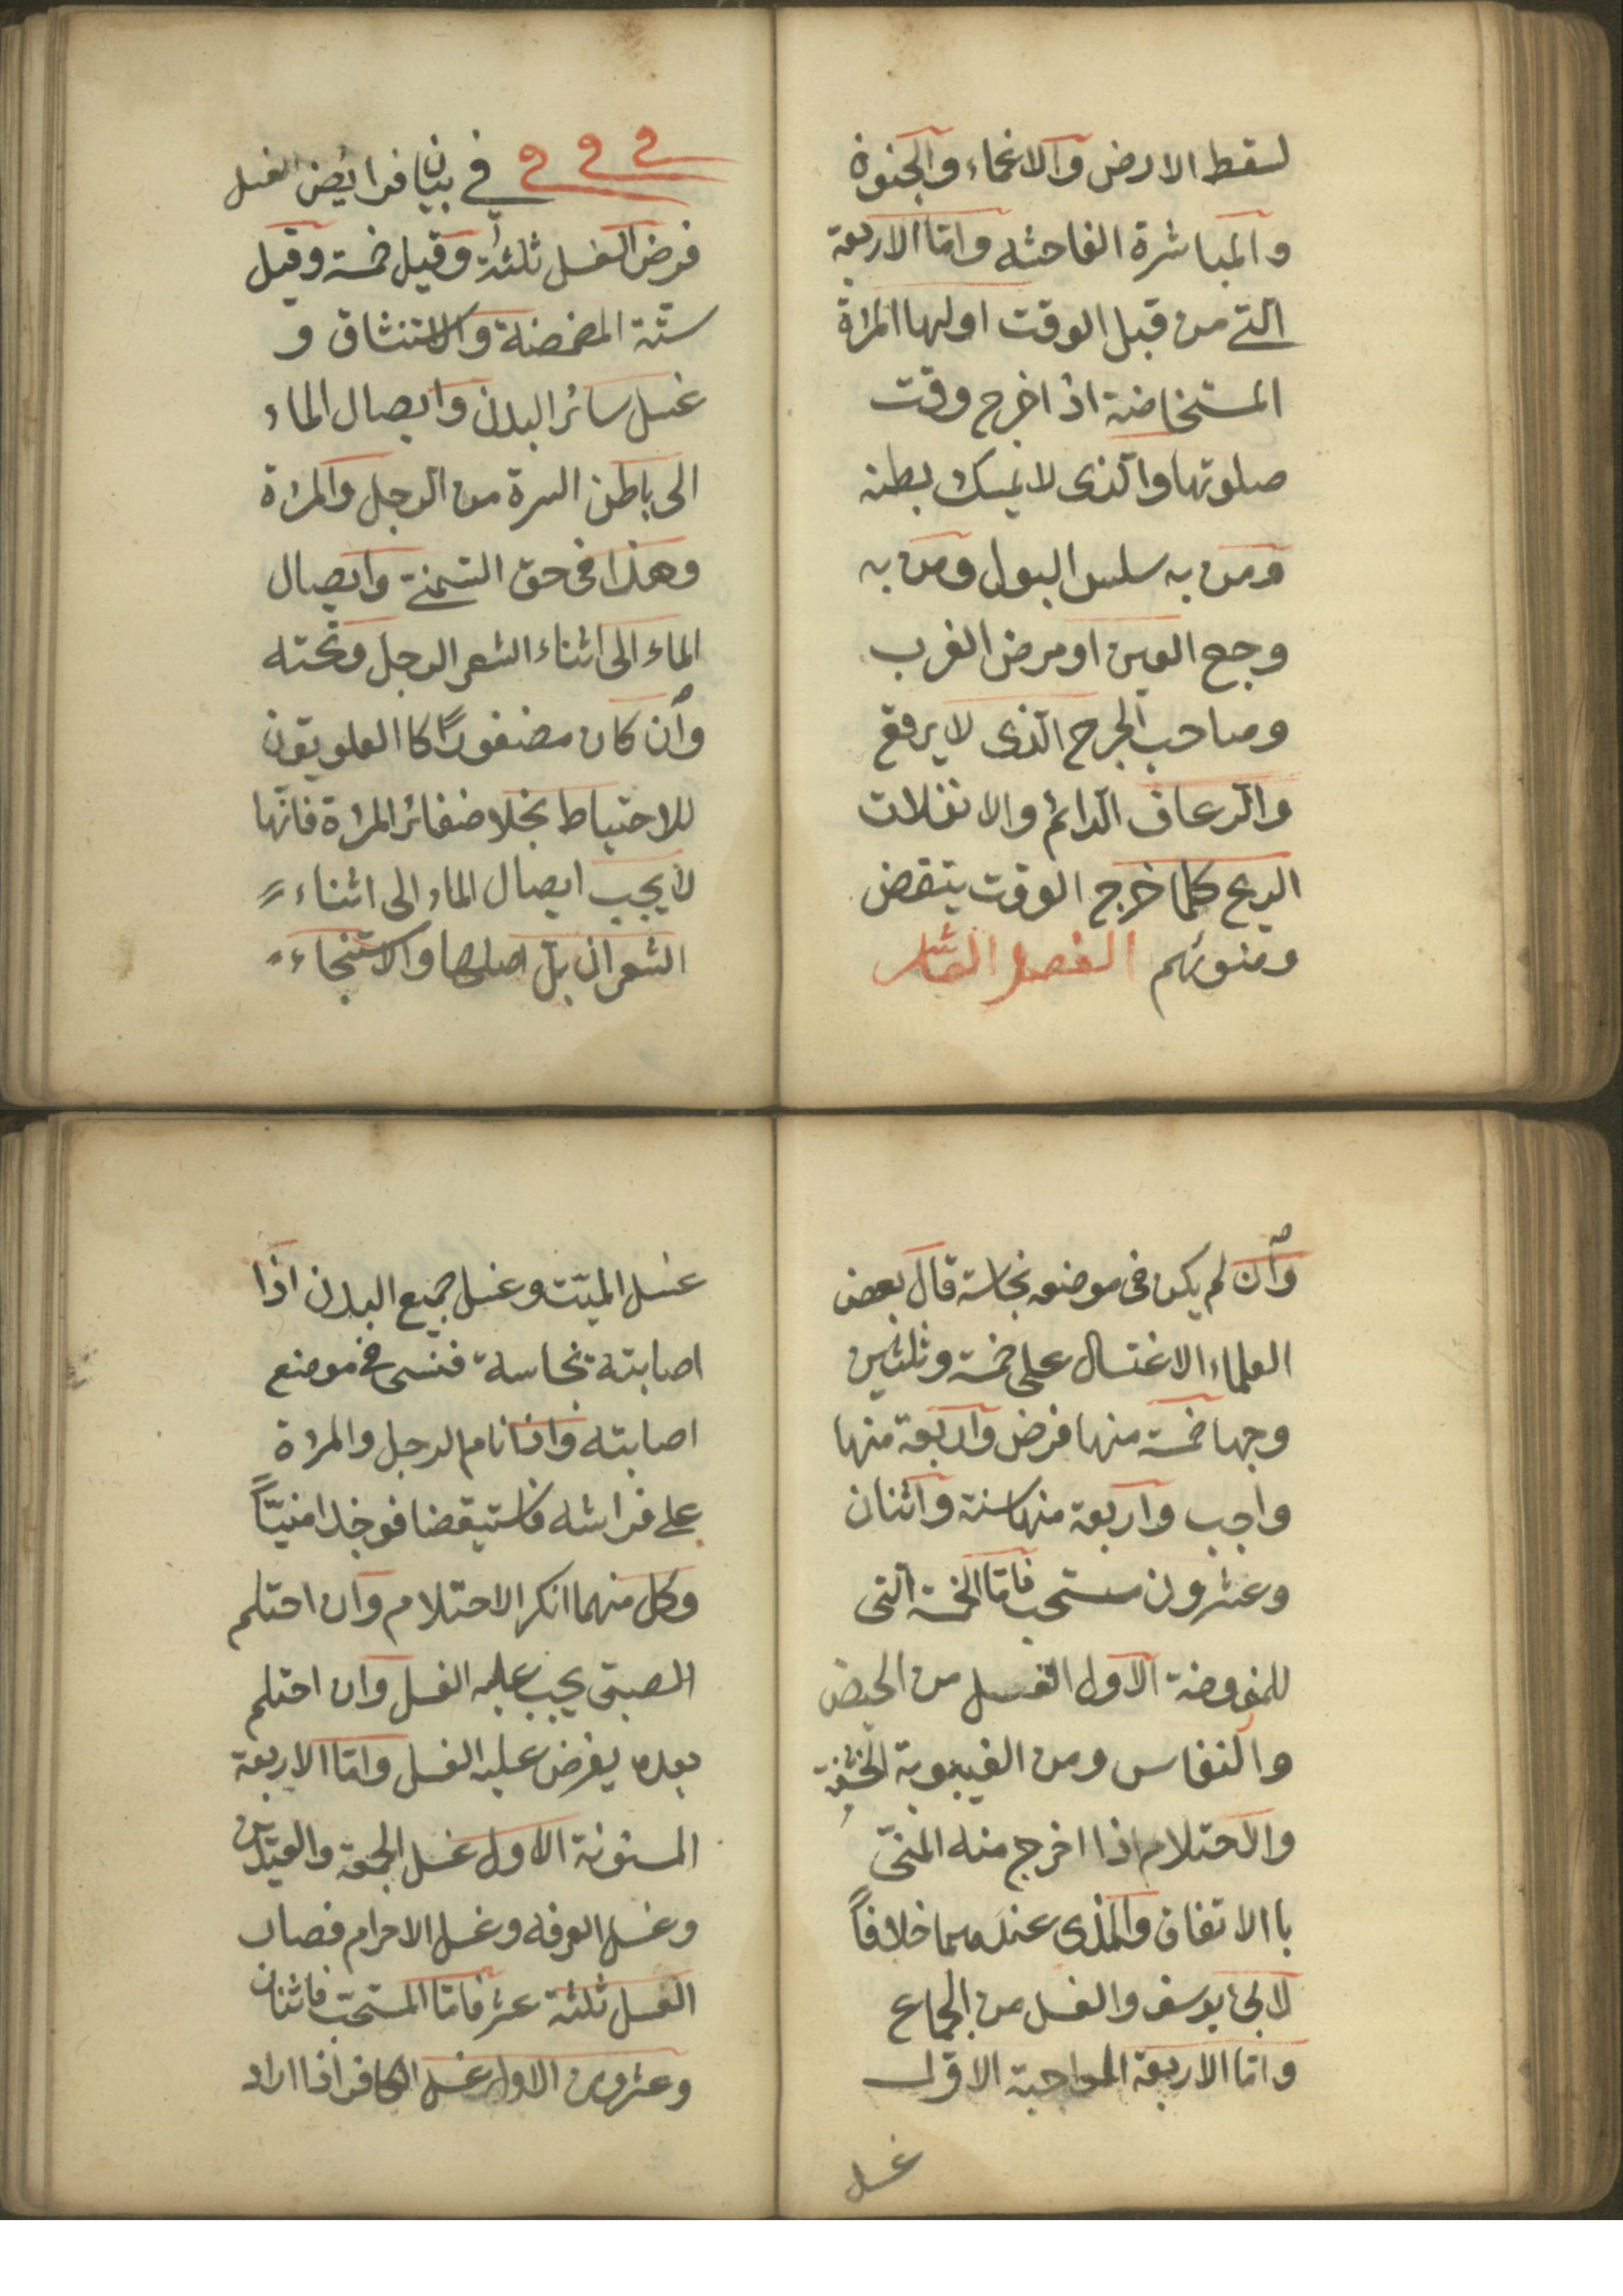 لسقط الارض والاغماء والجنون
والمباشرة الفاحشه واما الاربعة
التى من قبل الوقت اولها المراة
المستخاضة اذ اخرج وقت
صلوتها والذى لا يمسك بطنه
ومن به سلس البول ومن به
وجع العين او مرض الغرب
وصاحب الجرح الذى لا يرقع
والرعاف الدائم والانفلات
الريح كلما خرج الوقت ينتقض
وضوئهم الفصل الثانى
فى بيان فرايض الغسل
فرض الغسل ثلثة وقيل خمسة وقيل
ستة المضمضة والاستنشاق و
غسل سائر البدن وايصال الماء
الى باطن السرة من الرجل والمراة
وهذا فى حق السمنة وايصال
الماء الى اثناء الشعر الرجل وتحته
وان كان مضفورًا كا العلويون
للاحتياط بخلا ضفائر المراة فانها
لا يجب ايصال الماء الى اثناء
الشعر ان بل اصلها والاستنجاء
وان لم يكن فى موضعه نجاسة قال بعض
العلماء الاغتسال على خمسة وثلثين
وجها خمسة منها فرض واربعة منها
واجب واربعة منها سنة واثنان
وعشرون مستحب فاما الخمسة التى
للمفروضة الاول الغسل من الحيض
والنفاس ومن الغيبوبة الحشفة
والاحتلام اذا اخرج منه المنى
با الاتفاق والمذى عندهما خلافاً
لابى يوسف والغسل من الجماع
واما الاربعة الواجبة الاول
غسل
غسل الميت وغسل جميع البدن اذا
اصابته نجاسة فنسى فى موضع
اصابته واذا نام الرجل والمراة
على فراشه فاستيقضا فوجدا منيّاً
وكل منهما انكر الاحتلام وان احتلم
الصبى يجب عليه الغسل وان احتلم
بعده يفرض عليه الغسل واما الاربعة
المسنونة الاول غسل الجمعة والعيدين
وغسل العرفه وغسل الاحرام فصار
الغسل ثلثة عشر فاما المستحب فاثنان
وعشرون الاول غسل الكافر اذا اراد